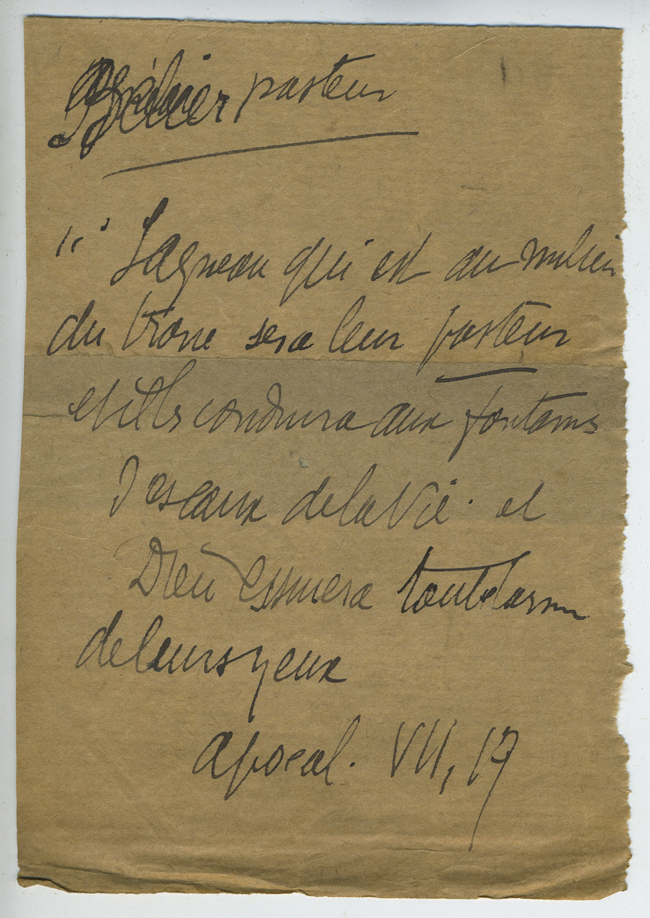 Bélier pasteur
"" L'agneau qui est au milieu
du trone sera leur pasteur
et il ls conduira aux fontaines
d'eseaux de la Vie. et
Dieu essuiera toute larme
de leurs yeux
apocal. VII, 17